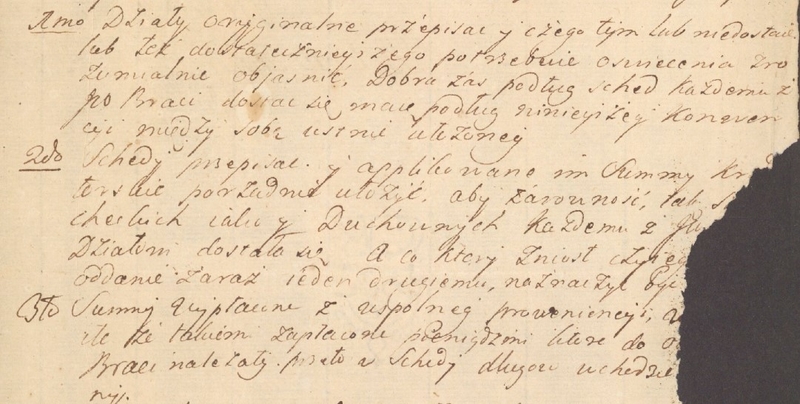 1mo Działy oryginalne przepisac y czego tym lub niedostaie
lub też dostatecznieyszego potrzebuie oswiecenia zro
zumialnie objasnić, Dobra zas podług sched każdemu z
JPP Braci dostac się maią podług ninieyszey Konwen
cyi między sobą ustnie ułożoney
2do Schedy przepisac y applikowane im Summy
porządnie ułożyć, aby zarowność, tak
checkich iako y Duchownych każdemu z
Działom dostała się A co ktory zniosł
oddanie zaraz ieden drugiemu, naznaczyć
3tio Summy wypłacone z wspolney proweniencyi,
ile że takiemi zapłacone pieniądzmi ktore do
Braci należały przeto w Schedy długow